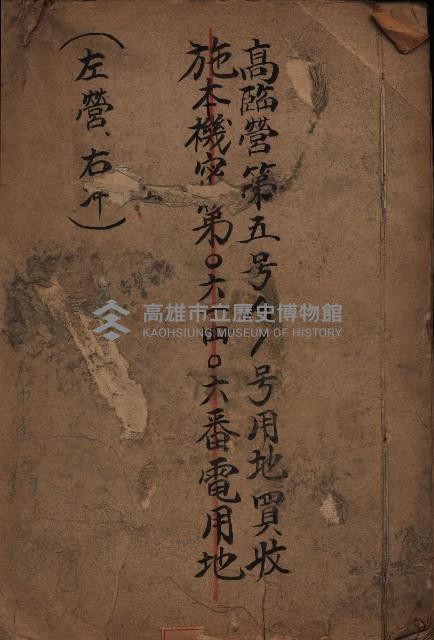 高臨営第五号ノ八号用地買收
施本機密第〇六一四〇六番電用地
(左營、右冲)
高雄市立歷史博物館
KAOHSIUNG MUSEUM OF HISTORY